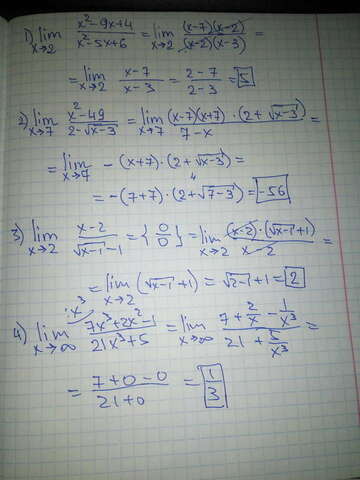 1) lim x→2 (x²-9x+4)/(x²-5x+6) = lim x→2 ((x-7)(x-2))/((x-2)(x-3)) =
= lim x→2 (x-7)/(x-3) = (2-7)/(2-3) = 5
2) lim x→7 (x²-49)/(2-√(x-3)) = lim x→7 ((x-7)(x+7)·(2+√(x-3)))/(7-x) =
= lim x→7 -(x+7)·(2+√(x-3)) =
= -(7+7)·(2+√(7-3)) = -56
3) lim x→2 (x-2)/(√(x-1)-1) = {0/0} = lim x→2 ((x-2)·(√(x-1)+1))/(x-2) =
= lim x→2 (√(x-1)+1) = √(2-1)+1 = 2
:x³
4) lim x→∞ (7x³+2x²-1)/(21x³+5) = lim x→∞ (7+2/x-1/x³)/(21+5/x³) =
= (7+0-0)/(21+0) = 1/3